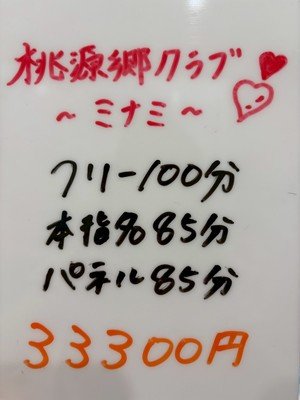 桃源郷クラブ
～ミナミ～
フリー100分
本指名85分
パネル85分
33300円